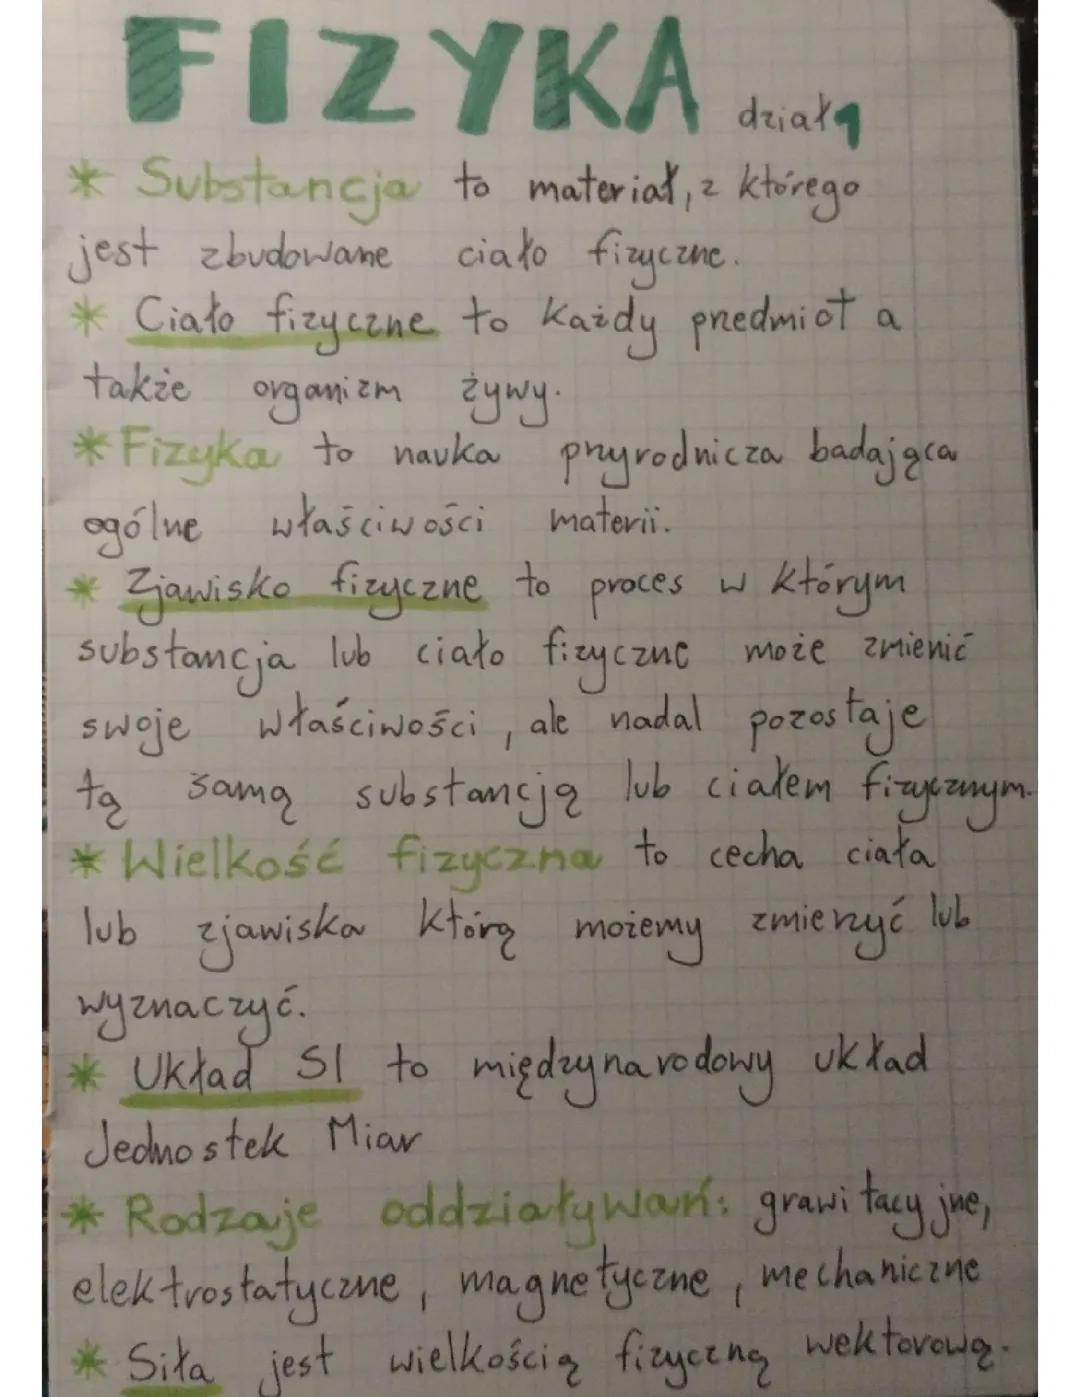 FIZYKA dział 1
* Substancja to materiał, z którego
jest zbudowane ciało fizyczne.
* Ciało fizyczne to każdy przedmiot a
także organizm żywy.
* Fizyka to nauka przyrodnicza badająca
ogólne właściwości materii.
* Zjawisko fizyczne to proces w którym
substancja lub ciało fizyczne może zmienić
swoje właściwości, ale nadal pozostaje
tą samą substancją lub ciałem fizycznym.
* Wielkość fizyczna to cecha ciała
lub zjawiska którą możemy zmierzyć lub
wyznaczyć.
* Układ SI to międzynarodowy układ
Jednostek Miar
* Rodzaje oddziaływań: grawitacyjne,
elektrostatyczne, magnetyczne, mechaniczne
* Siła jest wielkością fizyczną wektorową.